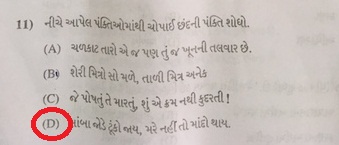 11) નીચે આપેલ પંક્તિઓમાંથી ચોપાઈ છંદની પંક્તિ શોધો.
(A) ચળકાટ તારો એ જ પણ તું જ ખૂનની તલવાર છે.
(B) શેરી મિત્રો સો મળે, તાળી મિત્ર અનેક
(C) જે પોષતું તે મારતું, શું એ ક્રમ નથી કુદરતી !
(D) લાંબા જોડે ટૂંકો જાય, મરે નહીં તો માંદો થાય.